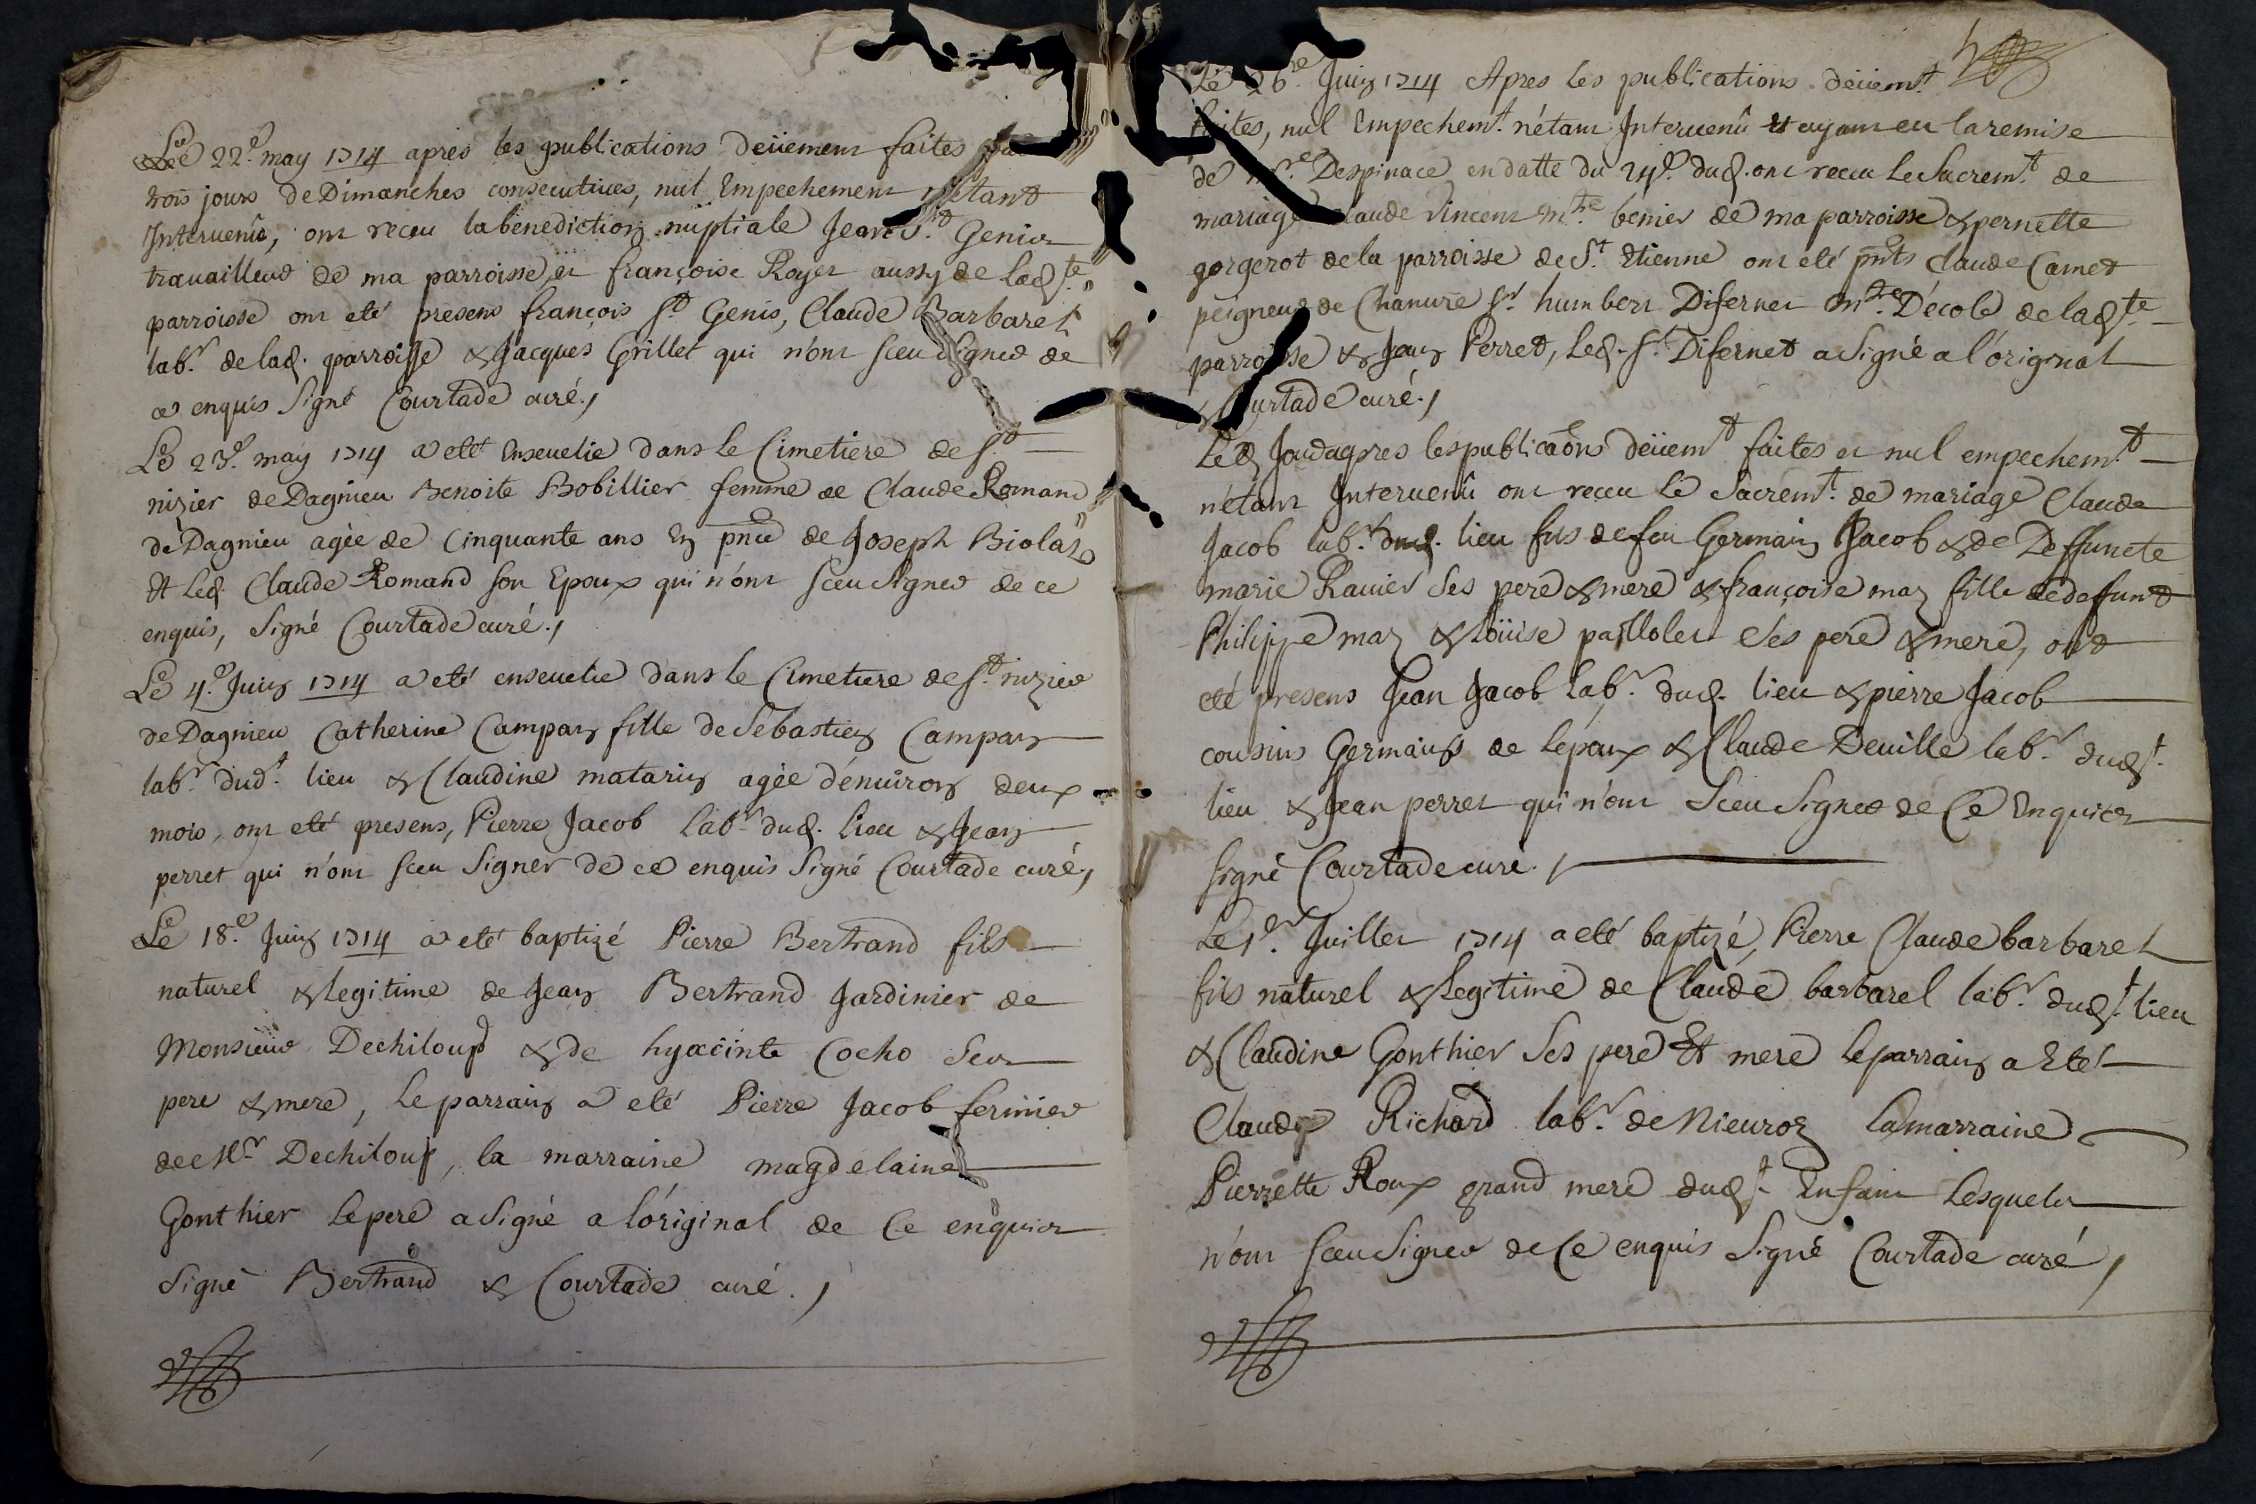 Le 22e. may 1714 apres les publications deüement faites
trois jours de Dimanches consecutives, nul Empechement n'étant
Intervenû, ont receu la benediction nuptiale Jean St. Genis
travailleur de ma parroisse, et françoise Royer aussy de lad.te
parroisse ont eté presens françois St Genis, Claude Barbaret
labr. de lad. parroisse & Jacques Grillet qui n'ont sceu signer de
ce enquis Signé Courtade curé.,
Le 23e. may 1714 a eté Ensevelie dans le Cimetiere de St
nizier de Dagnieu Benoite Bobillier femme de Claude Romand
de Dagnieu agée de Cinquante ans En pnce de Joseph Biolay
Et led. Claude Romand son Epoux qui n'ont sceu signer de ce
enquis, Signé Courtade curé.,
Le 4e. Juin 1714 a eté ensevelie dans le Cimetiere de St. nizier
de Dagnieu Catherine Campan fille de Sebastien Campan
labr dudt. lieu & Claudine matarin agée d'énuiron deux
mois, ont eté presens, Pierre Jacob labr. dud. lieu & Jean
perret qui n'ont sceu Signer de ce enquis Signé Courtade curé,
Le 18e. Juin 1714 a eté baptizé Pierre Bertrand fils
naturel & legitime de Jean Bertrand Jardinier de
Monsieur Dechiloup & de hyacinte Cocho Ses
pere & mere, Le parrain a eté Pierre Jacob fermier
de Mr Dechiloup, la marraine magdelaine
Gonthier Le pere a Signé a l'original de Ce enquis
Signé Bertrand & Courtade curé.,
Le 26e Juin 1714 Apres les publications deüemt.
faites, nul Empechemt. n'étant Intervenû Et ayant eu la remise
de Despinace en datte du 24e. dud. ont receu Le Sacremt. de
mariage Claude Vincent mtre benier de ma parroisse & pernette
gorgerot de la parroisse de St. Etienne ont eté pnts Claude Camet
peigneur de Chanure Sr. humbert Difernet Mtre. D'école de lad.te
parroisse & Jean Perret, Led. Sr. Difernet a Signé a l'original
& Courtade curé.,
Led. Jour apres les publicaons deüemt faites et nul empechemt.
n'étant Intervenû ont receu Le Sacremt. de mariage Claude
Jacob labr. dud. lieu fils de feu Germain Jacob & de Deffuncte
marie Ravier Ses pere & mere & françoise maz fille de deffunt
Philippe maz & Loüise paillolet Ses pere & mere, ont
eté presens Jean Jacob labr. dud. lieu & pierre Jacob
cousins Germains de l'époux & Claude Deville labr. dudt.
lieu & Jean perret qui n'ont Sceu Signer de Ce Enquis
Signé Courtade curé.,
Le 1er. Juillet 1714 a eté baptizé, Pierre Claude barbaret
fils naturel & legitime de Claude barbaret labr. dudt. lieu
& Claudine Gonthier Ses pere Et mere Le parrain a Eté
Claude Richard labr. de Nieuroz La marraine
Pierrette Roux grand mere dudt. Enfant Lesquels
n'ont Sceu Signer de Ce enquis Signé Courtade curé,